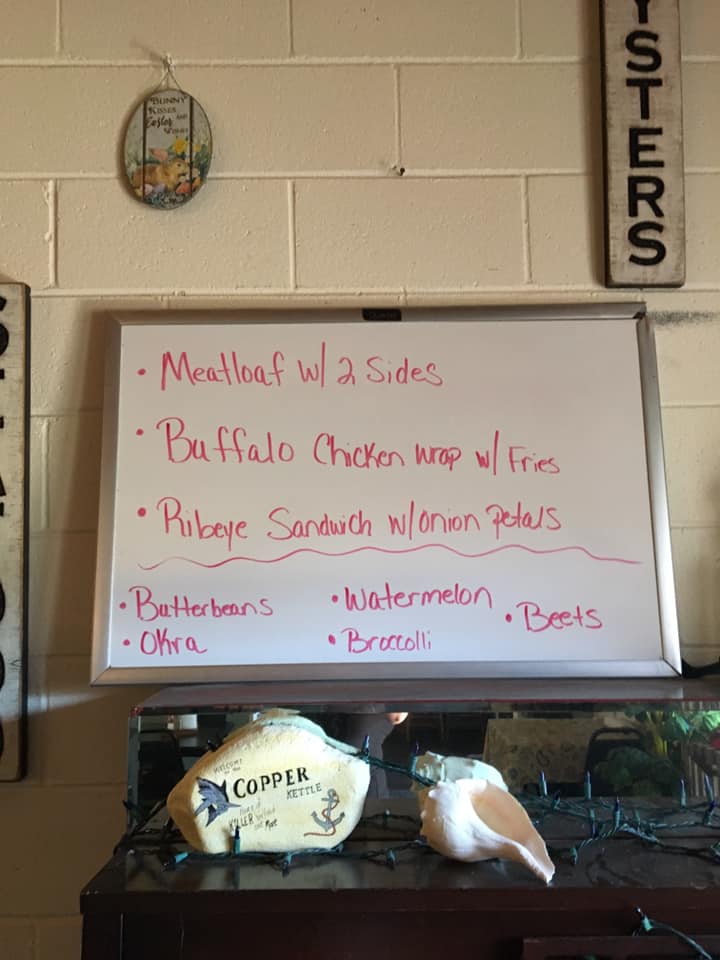 BUNNY
KISSES
AND
Easter
WISHES
YSTERS
• Meatloaf w/ 2 Sides
• Buffalo Chicken wrap w/ Fries
• Ribeye Sandwich w/ onion petals
• Butterbeans • Watermelon • Beets
• Okra • Broccoli
WELCOME
to the
COPPER
KETTLE
KILLER